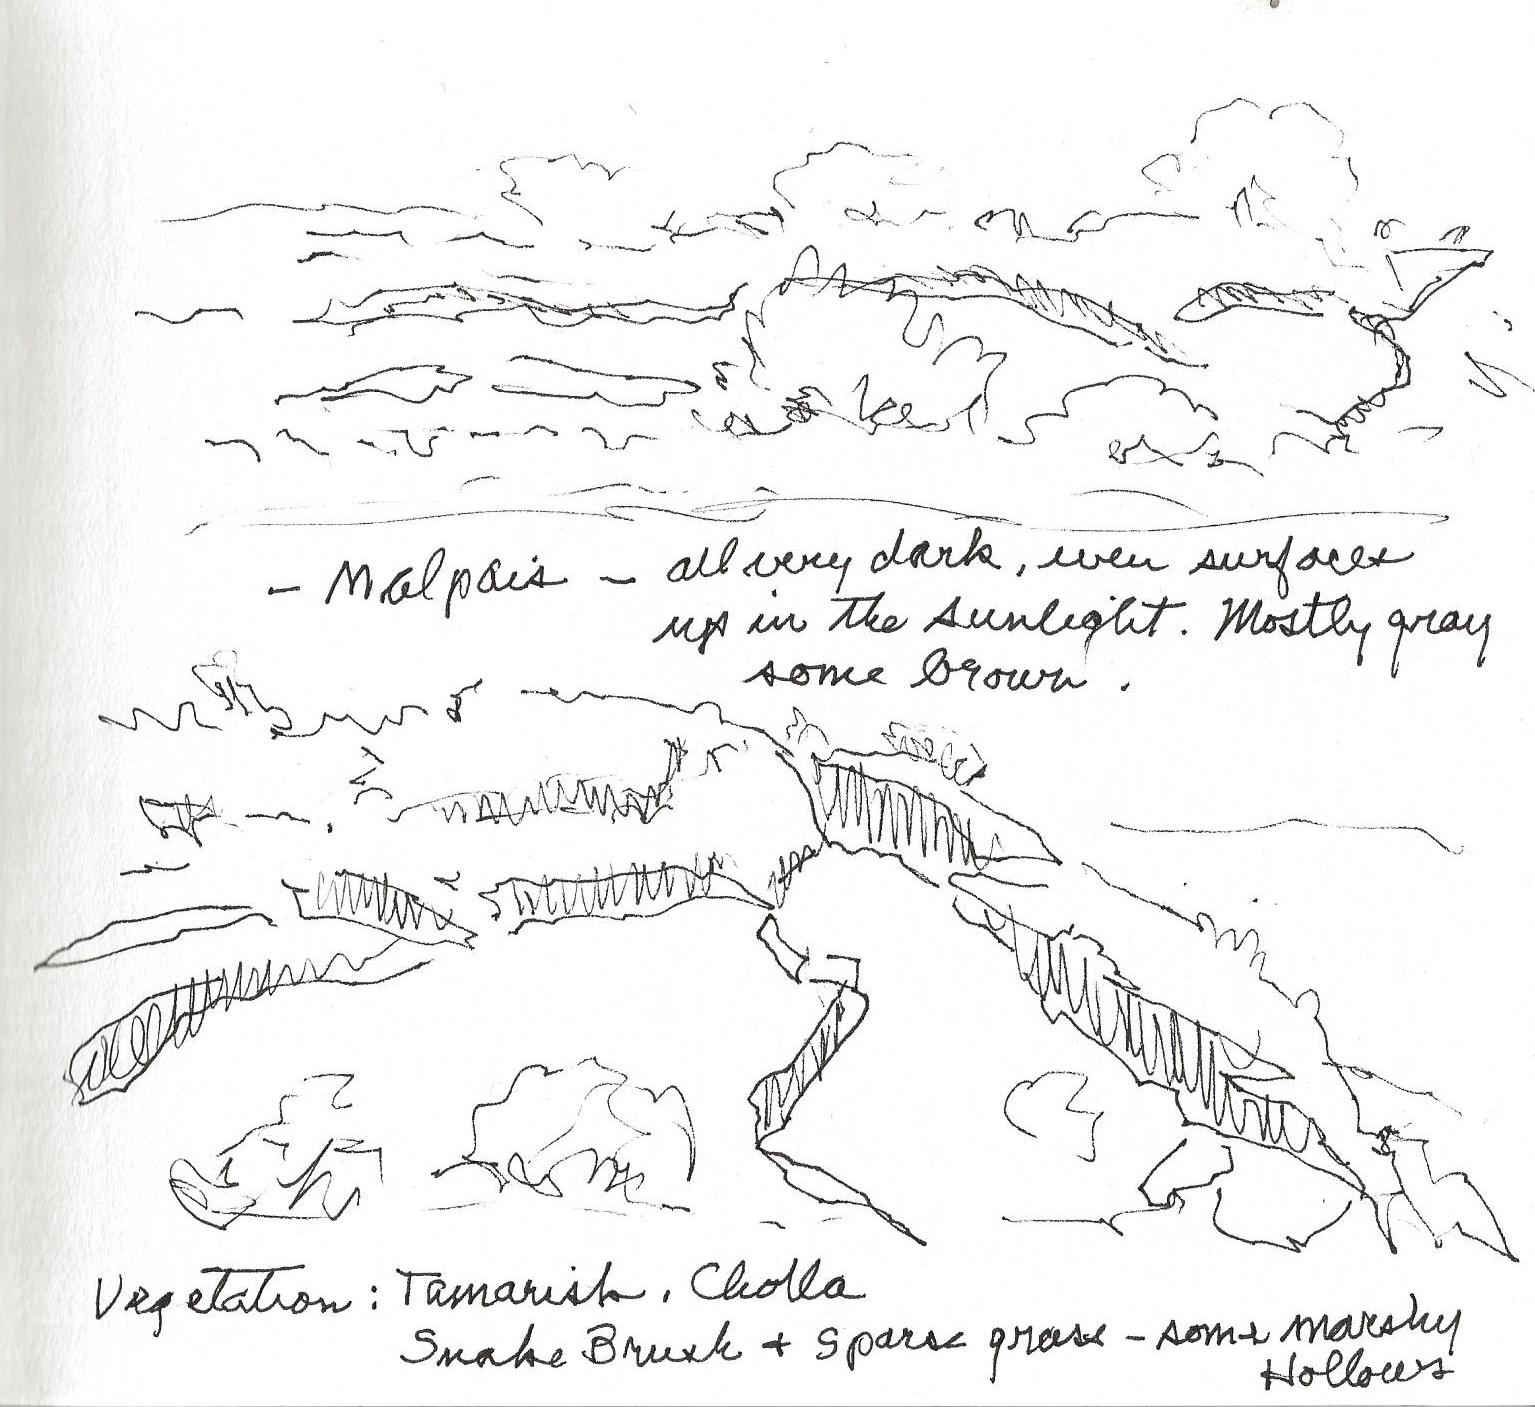 - Malpais - all very dark, even surfaces
up in the sunlight. Mostly gray
some brown.
Vegetation: Tamarisk, Cholla
Snake Brush + Sparse grass - some marshy
Hollows